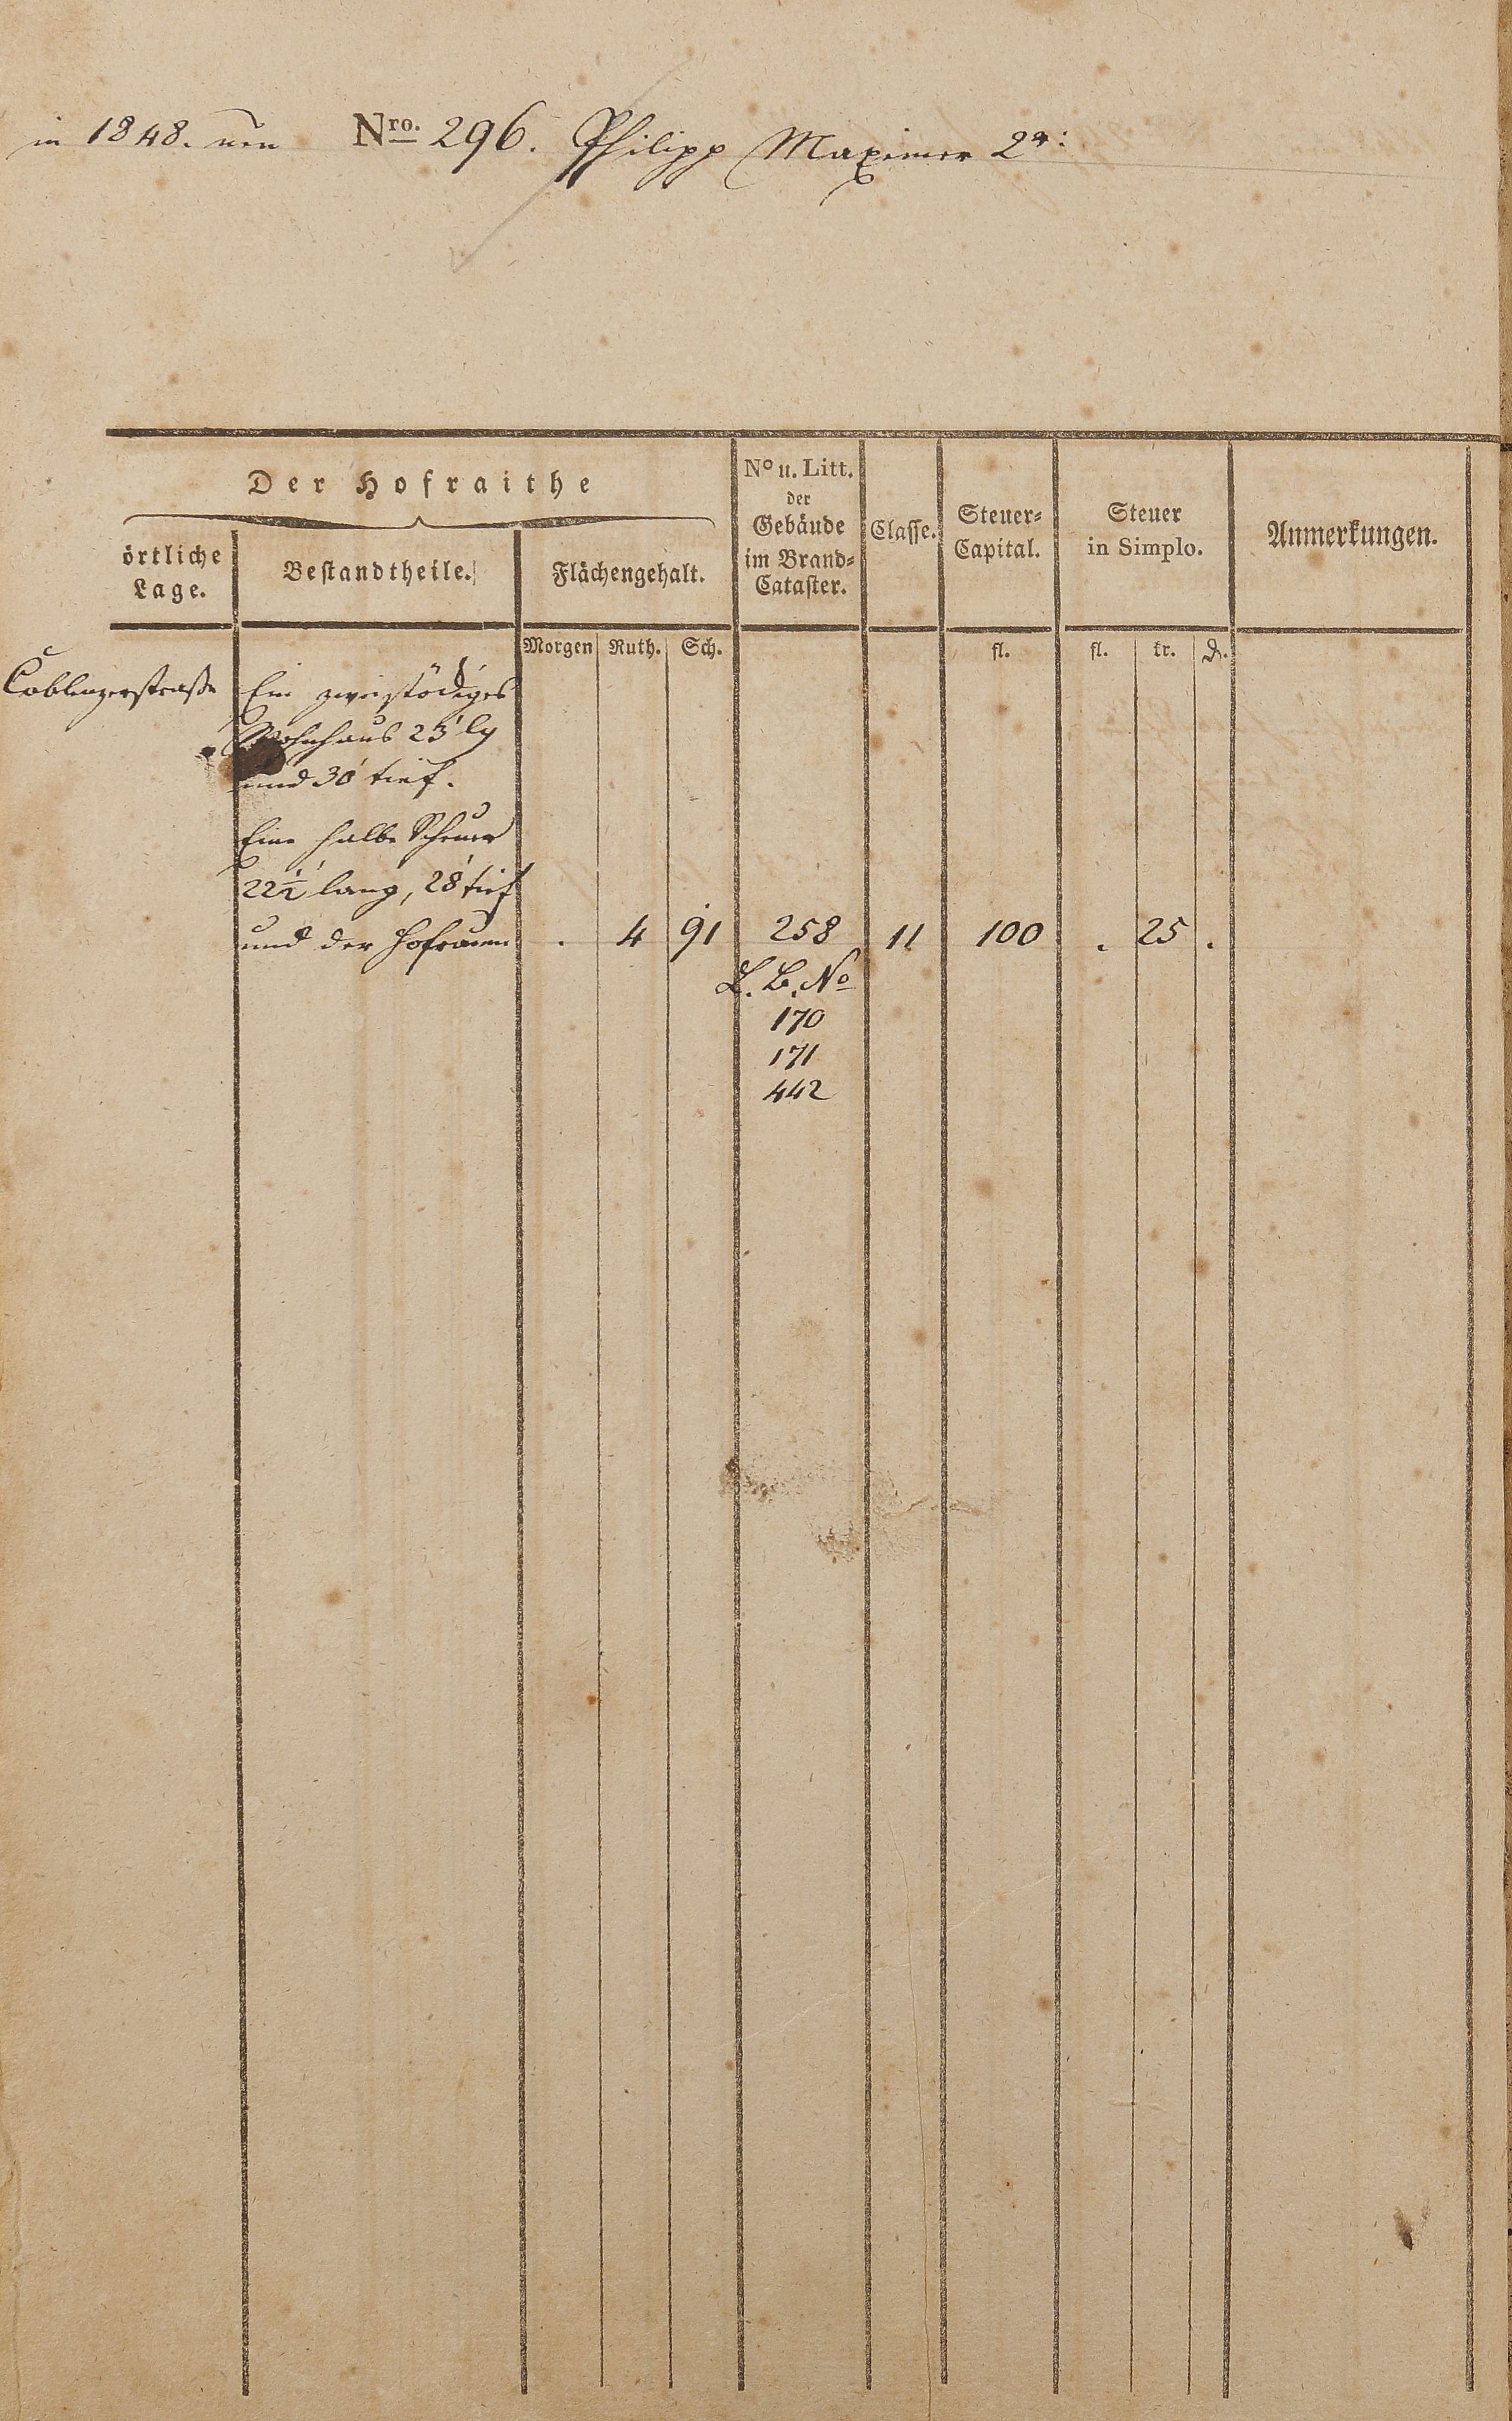 in 1848. neu Nro. 296. Philipp Maxeiner 2r:
Der Hofraithe
örtliche
Lage.
Bestandtheile.
Flächengehalt.
No u. Litt.
der
Gebäude
im Brand-
Cataster.
Classe.
Steuer-
Capital.
Steuer
in Simplo.
Anmerkungen.
Morgen Ruth. Sch. fl. fl. kr. ₰.
Coblenzerstraße Ein zweistöckiges
Wohnhaus 23' lg
und 30' tief.
Eine halbe Scheuer
22½' lang, 28' tief
und der Hofraum . 4 91 258 11 100 . 25 .
L. B. No
170
171
442